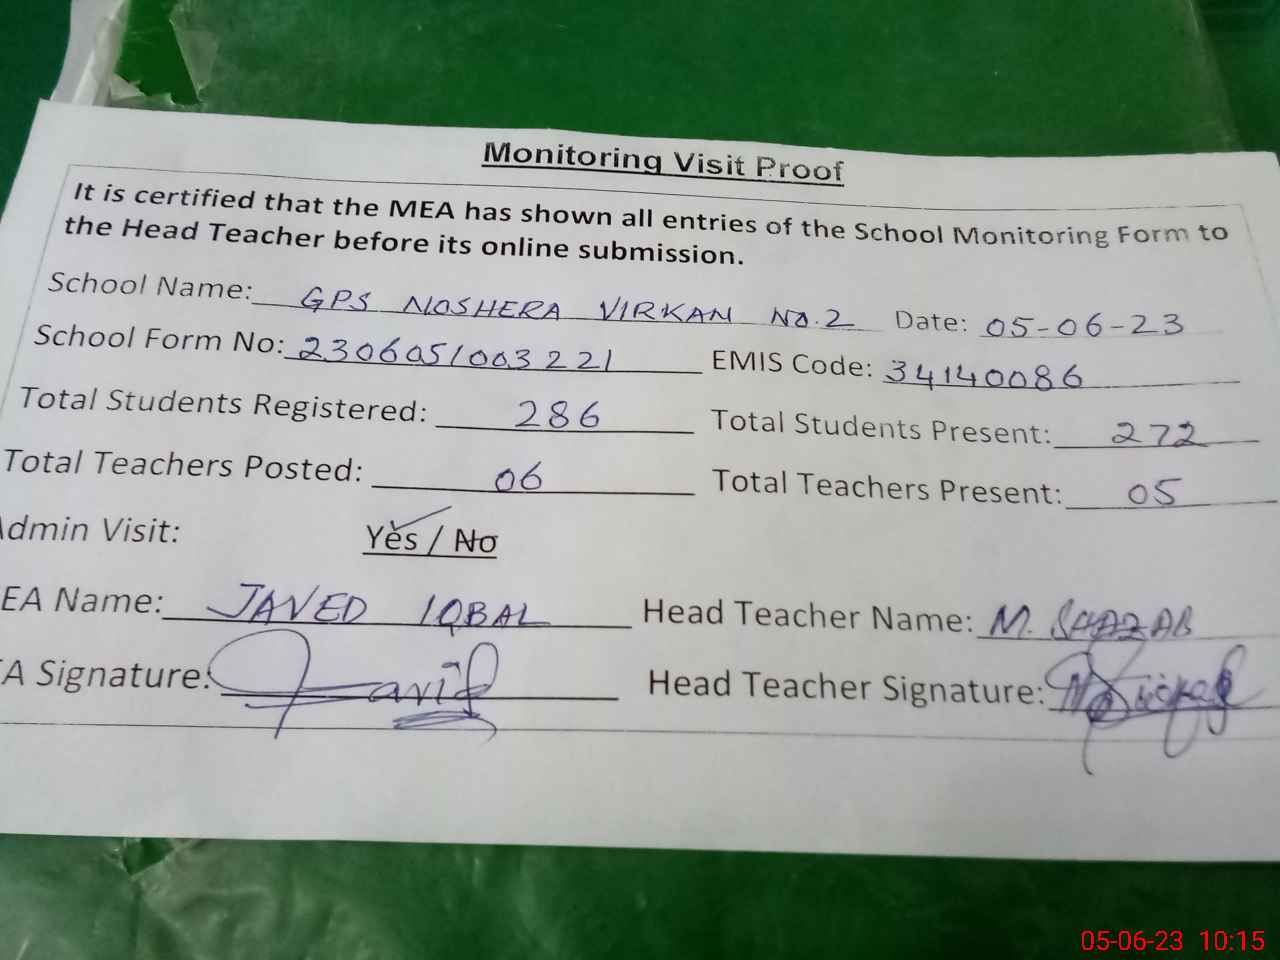 Monitoring Visit Proof
It is certified that the MEA has shown all entries of the School Monitoring Form to
the Head Teacher before its online submission.
School Name: GPS NOSHERA VIRKAN No.2 Date: 05-06-23
School Form No: 2306051003221 EMIS Code: 34140086
Total Students Registered: 286 Total Students Present: 272
Total Teachers Posted: 06 Total Teachers Present: 05
Admin Visit: Yes / No
EA Name: JAVED IQBAL Head Teacher Name: M.
A Signature: Head Teacher Signature:
05-06-23 10:15